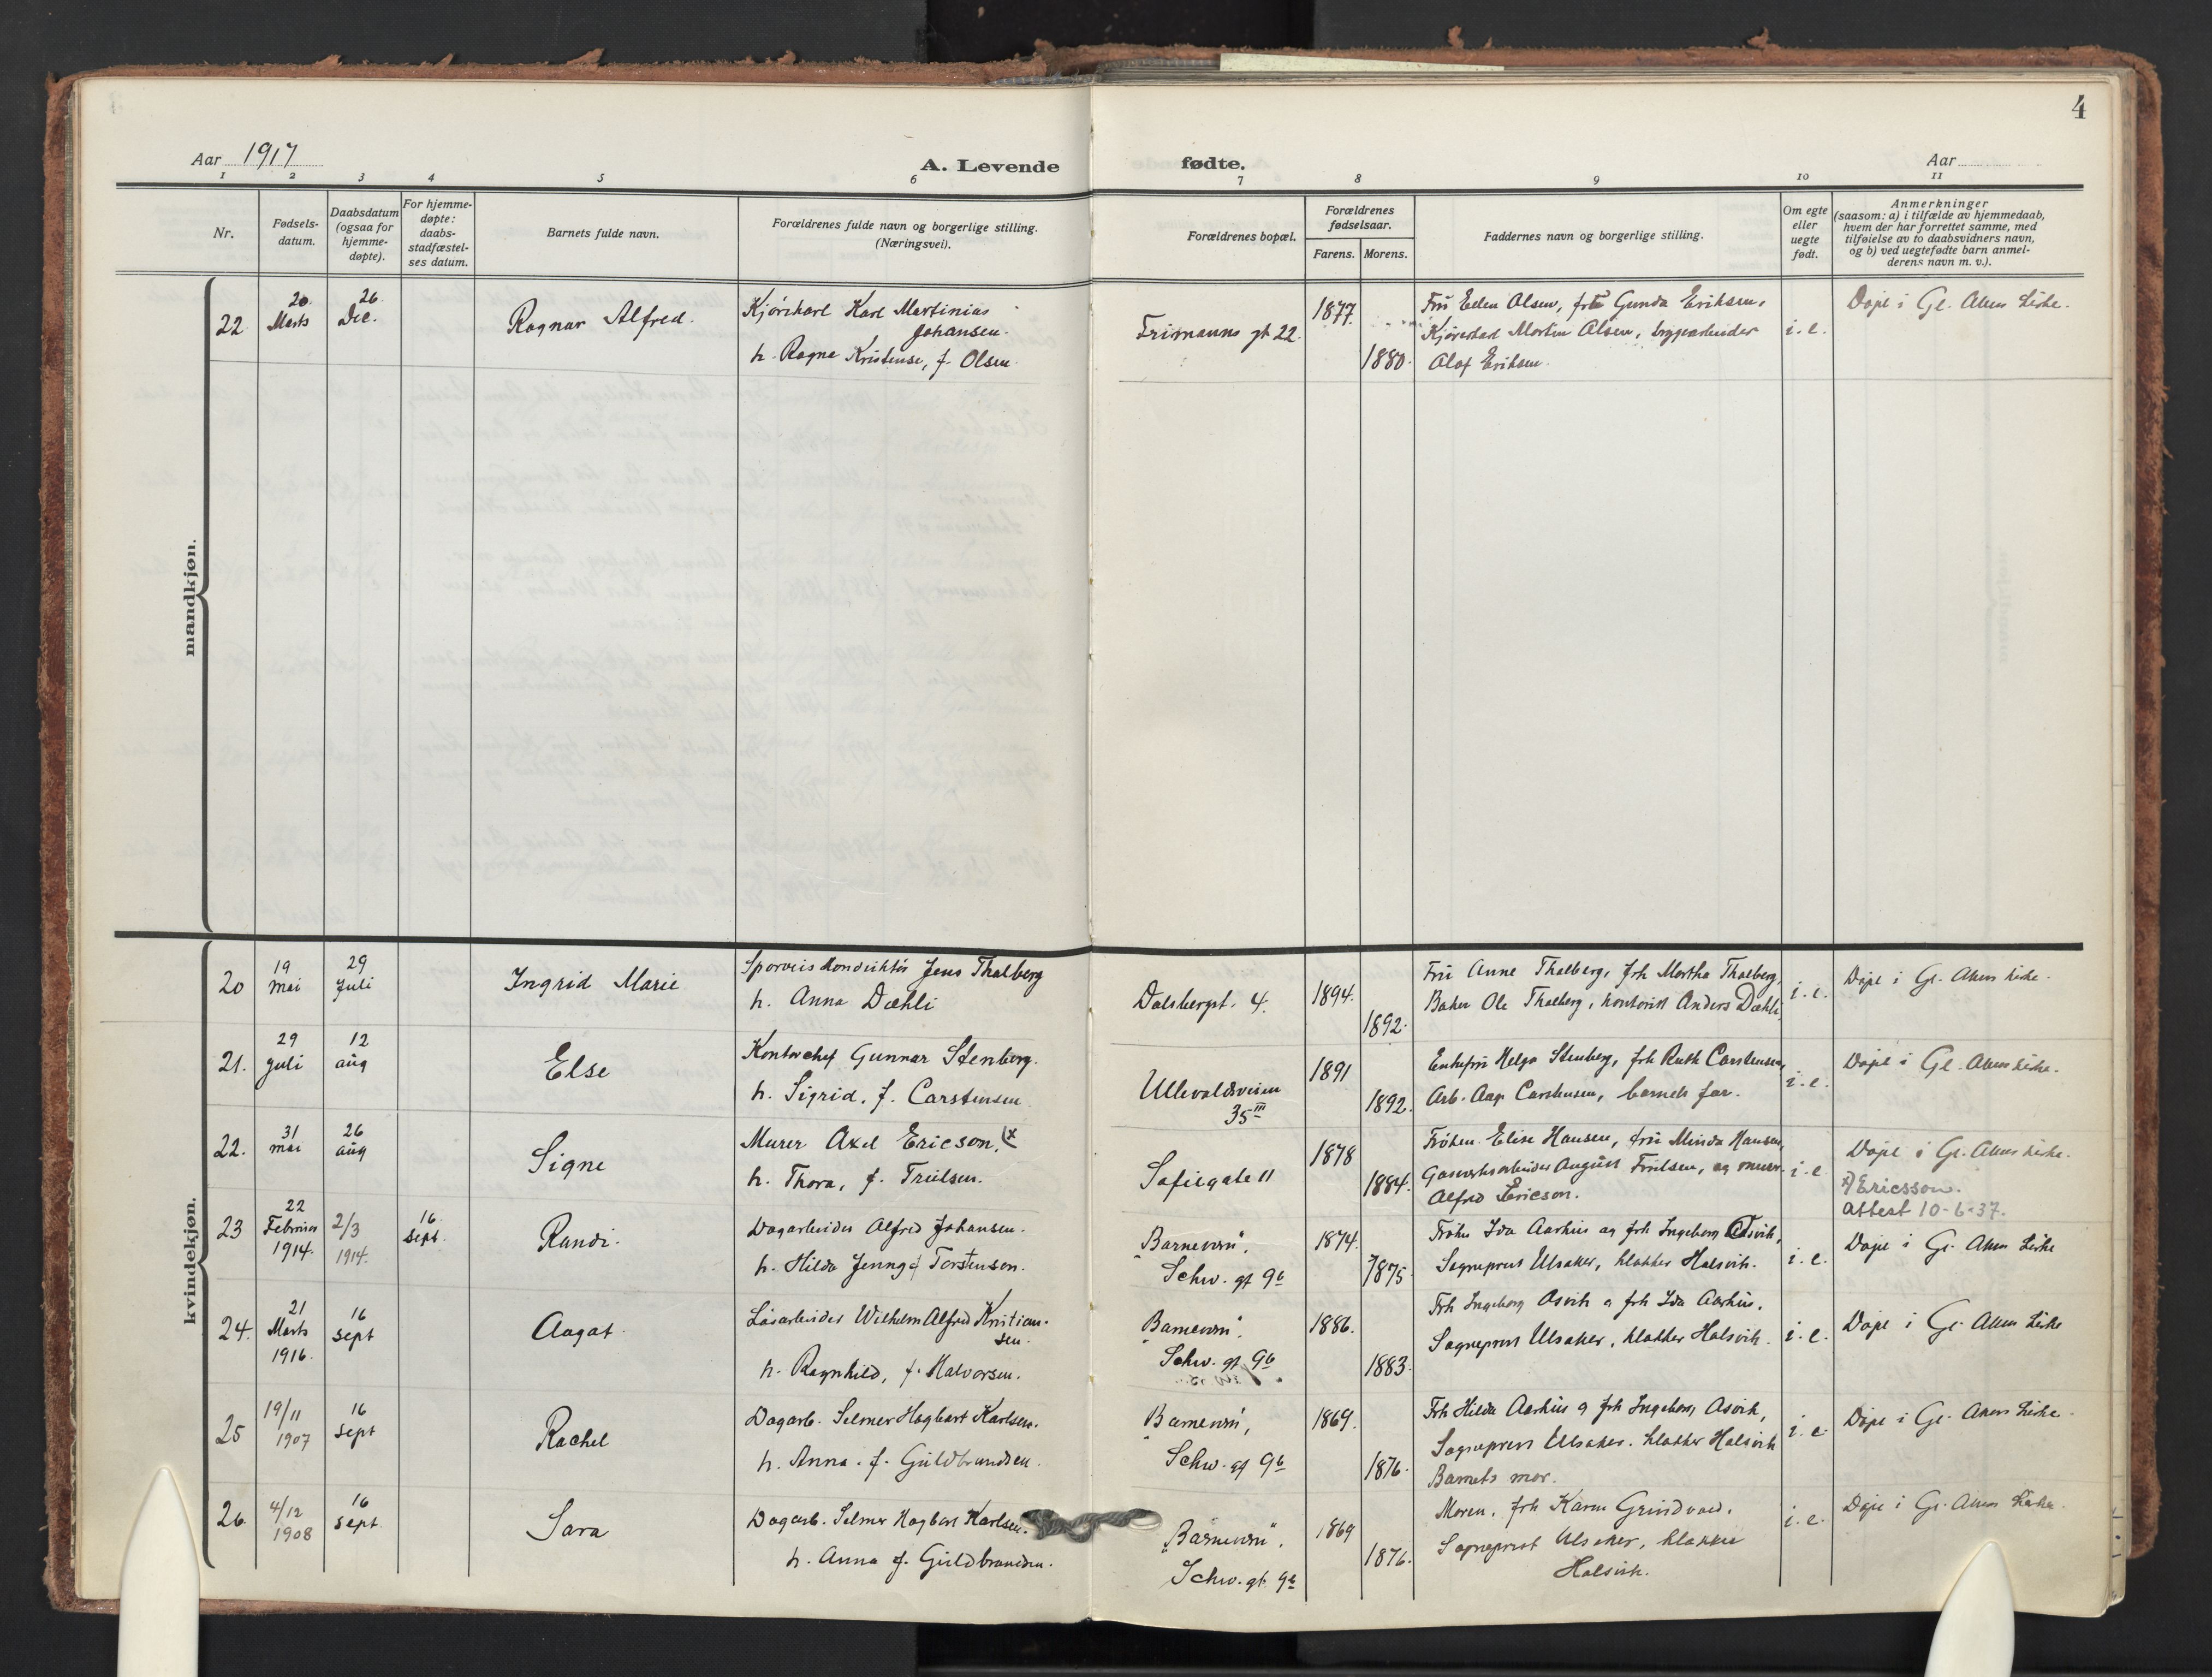 4
Aar 1917
A. Levende
fødte.
Aar
1 2 3 4 5 6 7 8 9 10 11
Nr.
Fødsels-
datum.
Daabsdatum
(ogsaa for
hjemme-
døpte).
For hjemme-
døpte:
daabs-
stadfæstel-
ses datum.
Barnets fulde navn.
Forældrenes fulde navn og borgerlige stilling.
(Næringsvei).
Forældrenes bopæl.
Forældrenes
fødselsaar.
Farens. Morens.
Faddernes navn og borgerlige stilling.
Om egte
eller
uegte
født.
Anmerkninger
(saasom: a) i tilfælde av hjemmedaab,
hvem der har forrettet samme, med
tilføielse av to daabsvidners navn,
og b) ved uegtefødte barn anmel-
derens navn m. v.).
mandkjøn.
22
20.
Marts
26
Dec.
Ragnar Alfred.
Kjørekarl Karl Martinius
Johansen.
h. Ragna Kristense, f. Olsen.
Frimanns gt 22.
1877.
1880.
Fru Ellen Olsen, fru Gunda Eriksen,
Kjørekarl Martin Olsen, bryggearbeider
Olaf Eriksen.
i. e.
Døpt i Gl. Akers kirke.
kvindekjøn.
20
19
mai
29
Juli
Ingrid Marie
Sporveiskonduktør Jens Thalberg
h. Anna Dæhli
Dalsbergst. 4.
1894.
1892.
Fru Anne Thalberg, frk Martha Thalberg,
Baker Ole Thalberg, kontorist Anders Dæhli
i. e.
Døpt i Gl. Akers kirke.
21.
29
Juli
12
aug
Else
Kontorchef Gunnar Stenberg.
h. Sigrid, f. Carstensen
Ullevaldsveien
35 III
1891
1892.
Enkefru Helga Stenberg, frk Ruth Carstensen,
Ark. Aage Carstensen, barnets far.
i. e.
Døpt i Gl. Akers kirke.
22.
31
mai
26
aug
Signe
Murer Axel Ericson. (x
h. Thora, f. Truelsen.
Sofiegate 11
1878
1884.
Frøken Elise Hansen, fru Minda Hansen,
Gasverksarbeider August Truelsen, og murer
Alfred Ericson.
i. e
Døpt i Gl. Akers kirke.
x) Ericsson.
attest 10-6-37.
23
22
Februar
1914.
2/3
1914.
16
sept.
Randi.
Dagarbeider Alfred Johansen.
h. Hilda Jenny f Torstenson.
"Barnevern".
Schw. gt 9b
1874.
1875.
Frøken Ida Aarhus og frk Ingeborg Osvik,
Sogneprest Ulsaker, klokker Halsvik.
i. e.
Døpt i Gl. Akers kirke
24.
21
Marts
1916.
16
sept
Aagot.
Løsarbeider Wilhelm Alfred Kristian-
sen.
h. Ragnhild, f. Halvorsen.
"Barnevern".
Schw. gt 9b
1886.
1883.
Frk Ingeborg Osvik o frk Ida Aarhus.
Sogneprest Ulsaker, klokker Halsvik.
i. e.
Døpt i Gl. Akers kirke
25
19/11
1907
16
sept
Rachel
Dagarb. Selmer Hagbart Karlsen.
h. Anna. f. Guldbrandsen.
"Barnevern",
Schw. gt 9b
1869.
1876.
Frk Hilda Aarhus o frk Ingeborg Osvik,
Sogneprest Ulsaker. klokker Halsvik
Barnets mor.
i. e.
Døpt i Gl. Akers kirke.
26.
4/12
1908
16
sept.
Sara
Dagarb. Selmer Hagbart Karlsen.
h. Anna f. Guldbrandsen.
"Barnevern".
Schw. gt. 9b
1869
1876.
Moren, frk Karen Grindvold.
Sogneprest Ulsaker, klokker
Halsvik.
i. e.
Døpt i Gl. Akers kirke.